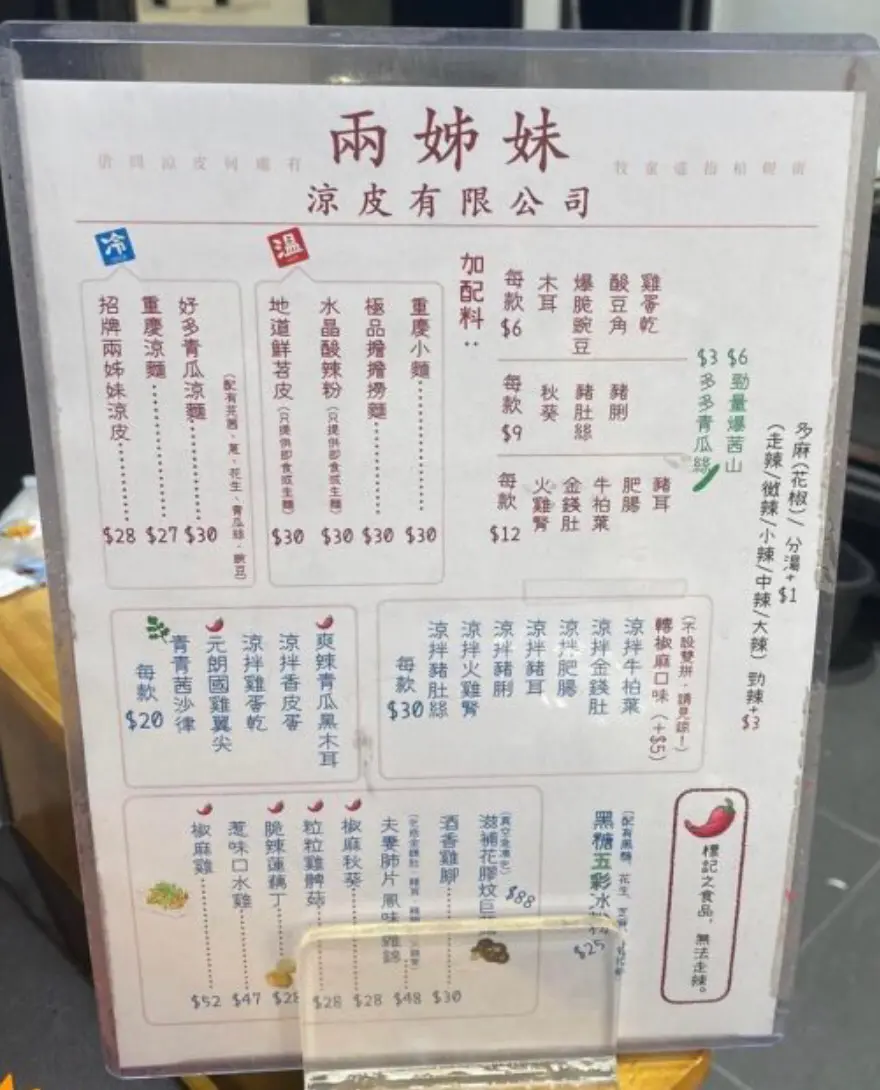 兩姊妹
涼皮有限公司
冷
招牌兩姊妹涼皮 $28
重慶涼麵 $27
好多青瓜涼麵 $30
溫
地道鮮苕皮(只提供即食或生麵) $30
水晶酸辣粉(只提供即食或生麵) $30
極品擔擔撈麵 $30
重慶小麵 $30
加配料:
每款$6
木耳
爆脆豌豆
酸豆角
雞蛋乾
每款$9
秋葵
豬肚絲
豬脷
每款$12
火雞腎
金錢肚
牛柏葉
肥腸
豬耳
$6 勁量爆茜山
$3 多多青瓜絲
多麻(花椒)/ 分湯+$1
(走辣/微辣/小辣/中辣/大辣) 勁辣+$3
爽辣青瓜黑木耳
涼拌香皮蛋
涼拌雞蛋乾
元朗國雞翼尖
青青茜沙律
每款$20
(不設雙拼,請見諒!)
轉椒麻口味(+$5)
涼拌牛柏葉
涼拌金錢肚
涼拌肥腸
涼拌豬耳
涼拌豬脷
涼拌火雞腎
涼拌豬肚絲
每款$30
椒麻雞 $52
惹味口水雞 $47
脆辣蓮藕丁 $28
粒粒雞髀菇 $28
椒麻秋葵 $28
夫妻肺片 風味 $48
酒香雞腳 $30
滋補花膠炆 $88
黑糖五彩冰粉 $25
標記之食品,無法走辣。